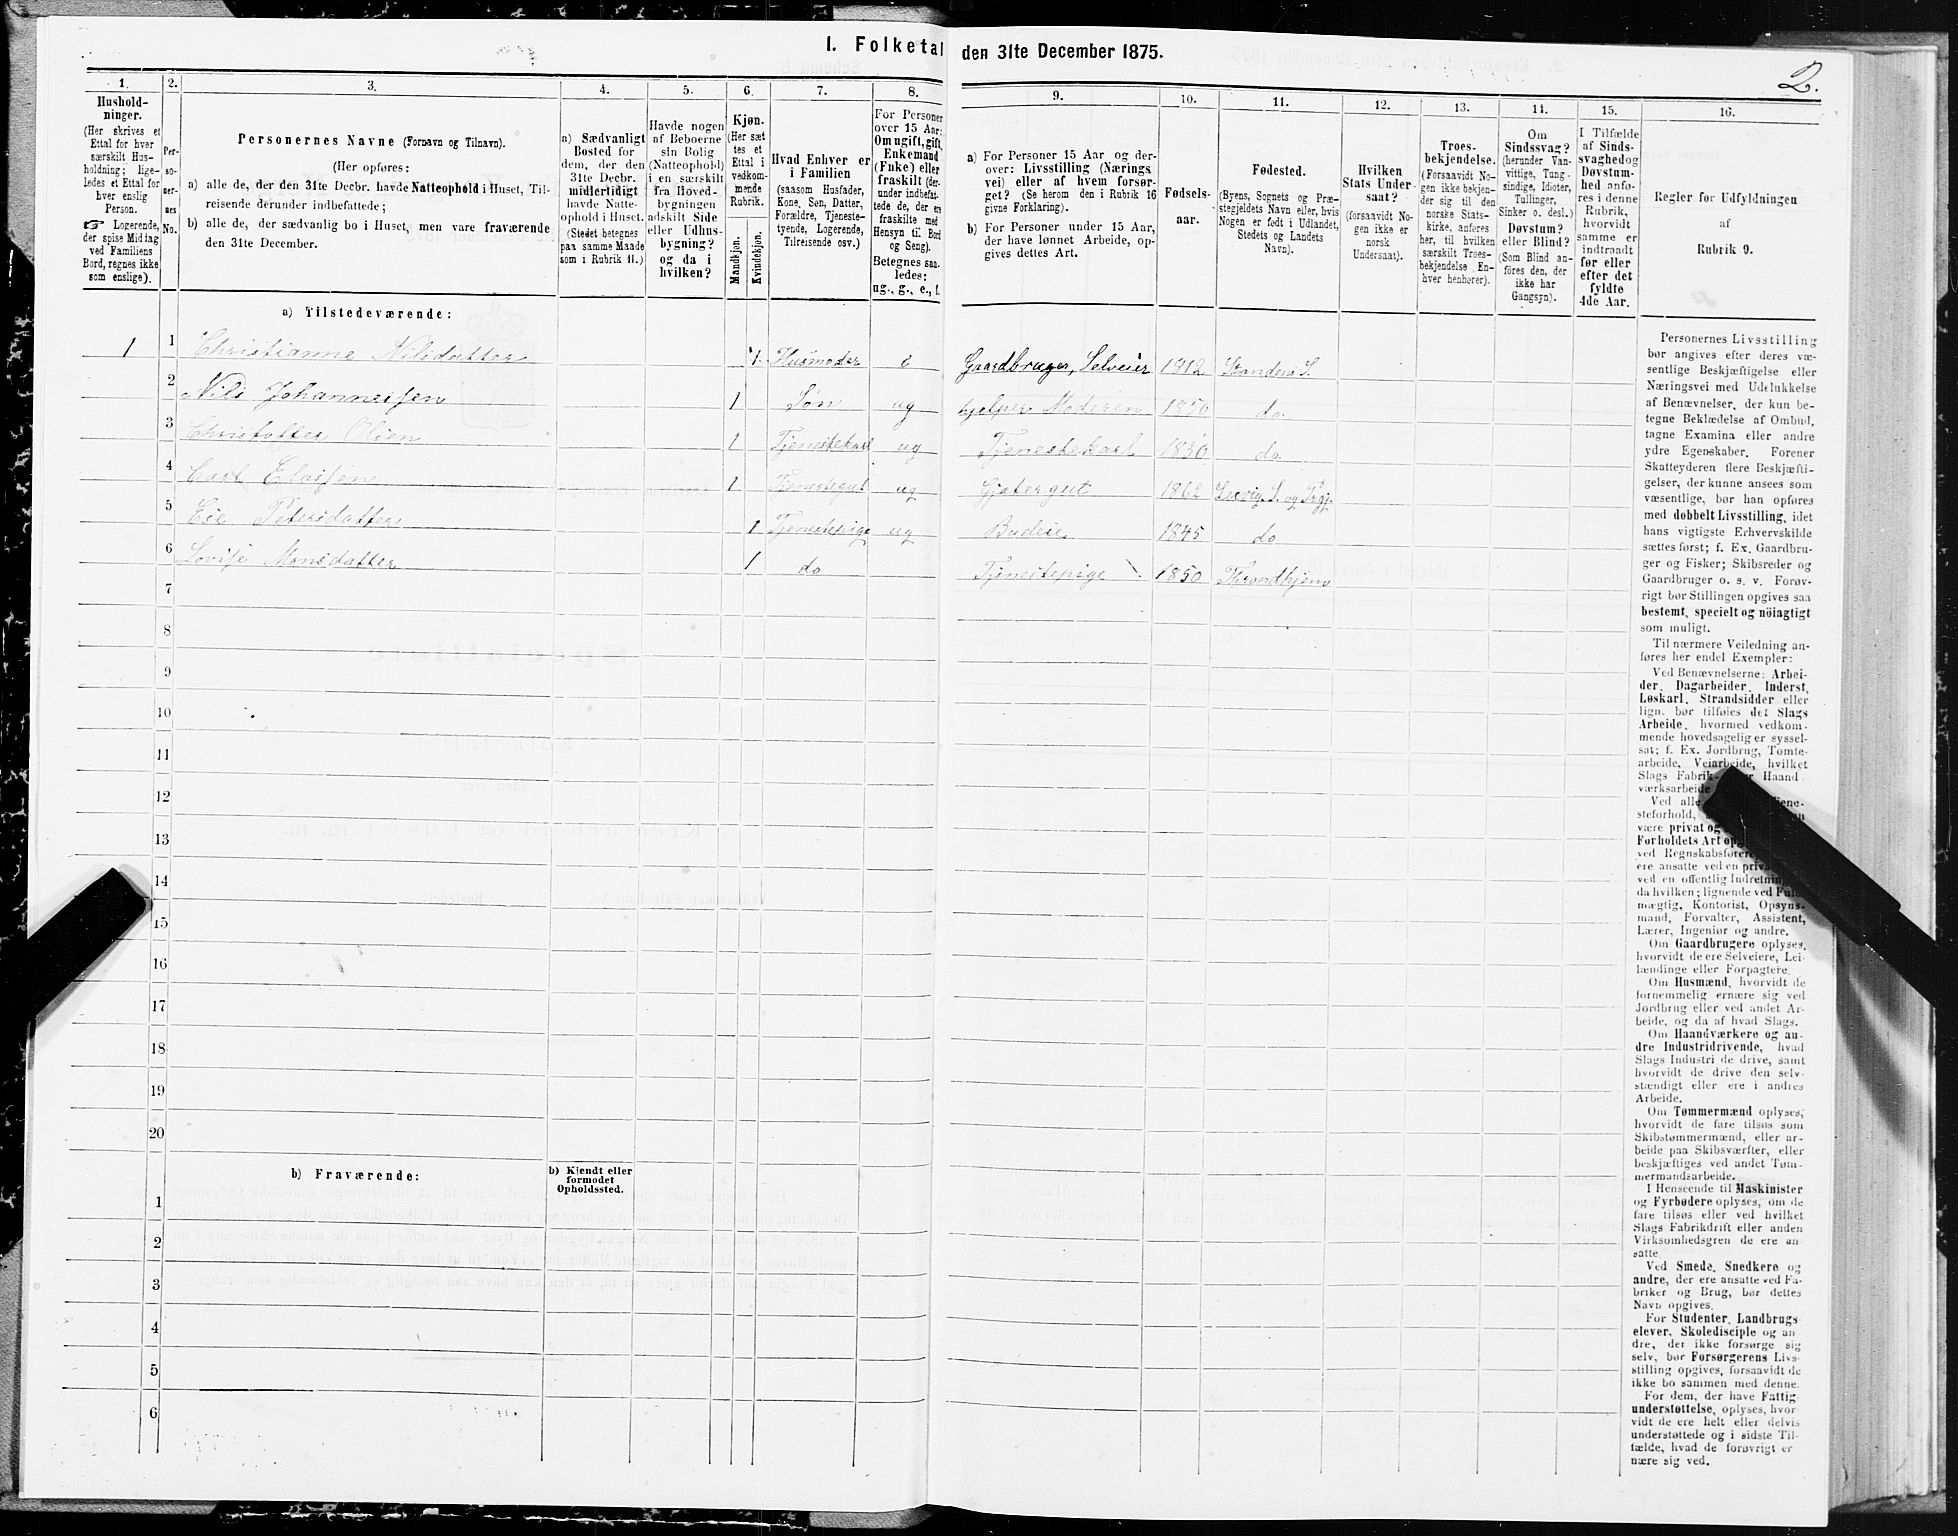 I. Folketal den 31te December 1875.
2.
1.
Hushold-
ninger.
(Her skrives et
Ettal for hver
særskilt Hus-
holdning; lige-
ledes et Ettal for
hver enslig
Person.
☞ Logerende,
der spise Middag
ved Familiens
Bord, regnes ikke
som enslige).
2.
Per-
so-
ner-
nes
No.
3.
Personernes Navne (Fornavn og Tilnavn).
(Her opføres:
a) alle de, der den 31te Decbr. havde Natteophold i Huset, Til-
reisende derunder indbefattede;
b) alle de, der sædvanlig bo i Huset, men vare fraværende
den 31te December.
4.
a) Sædvanligt
Bosted for
dem, der den
31te Decbr.
midlertidigt
havde Natte-
ophold i Huset.
(Stedet betegnes
paa samme Maade
som i Rubrik 11.)
5.
Havde nogen
af Beboerne
sin Bolig
(Natteophold)
i en særskilt
fra Hoved-
bygningen
adskilt Side
eller Udhus-
bygning?
og da i
hvilken?
6.
Kjøn.
(Her sæt
tes et
Ettal i
vedkom-
mende
Rubrik.
Mandkjøn.
Kvindekjøn.
7.
Hvad Enhver er
i Familien
(saasom Husfader,
Kone, Søn, Datter,
Forældre, Tjeneste-
tyende, Logerende,
Tilreisende osv.)
8.
For Personer
over 15 Aar:
Om ugift, gift,
Enkemand
(Enke) eller
fraskilt (der-
under indbefat-
tede de, der ere
fraskilte med
Hensyn til Bord
og Seng).
Betegnes saa-
ledes:
ug., g., e., f.
9.
a) For Personer 15 Aar og der-
over: Livsstilling (Nærings
vei) eller af hvem forsør-
get? (Se herom den i Rubrik 16
givne Forklaring).
b) For Personer under 15 Aar,
der have lønnet Arbeide, op-
gives dettes Art.
10.
Fødsels-
aar.
11.
Fødested.
(Byens, Sognets og Præ-
stegjeldets Navn eller, hvis
Nogen er født i Udlandet,
Stedets og Landets
Navn).
12.
Hvilken
Stats Under-
saat?
(forsaavidt No-
gen ikke er
norsk
Undersaat).
13.
Troes-
bekjendelse.
(Forsaavidt No-
gen ikke bekjen-
der sig til den
norske Stats-
kirke, anføres
her, til hvilken
særskilt Troes-
bekjendelse En-
hver henhører).
14.
Om
Sindssvag?
(herunder Van-
vittige, Tung-
sindige, Idioter,
Tullinger,
Sinker o. desl.)
Døvstum?
eller Blind?
(Som Blind an-
føres den, der
ikke har
Gangsyn).
15.
I Tilfælde
af Sinds-
svaghedog
Døvstum-
hed anfø-
res i denne
Rubrik,
hvorvidt
samme er
indtraadt
før eller
efter det
fyldte
4de Aar.
16.
Regler for Udfyldningen
af
Rubrik 9.
a) Tilstedeværende:
1 1 Christianne Nilsdatter 1 Husmoder e Gaardbruger, Selveier 1812 S.
2 Nils Johannesen 1 Søn ug hjelper Moderen 1850 do.
3 Olsen 1 Tjenestekarl ug Tjenestekarl 1830 do.
4 1 Tjenestegut ug Gjætergut 1862
5 Petersdatter 1 Tjenestepige ug Budeie 1845 do
6 Lovise Monsdatter 1 do Tjenestepige 1850 Throndhjem
7
8
9
10
11
12
13
14
15
16
17
18
19
20
b) Fraværende:
b) Kjendt eller
formodet
Opholdssted.
1
2
3
4
5
6
Personernes Livsstilling
bør angives efter deres væ-
sentlige Beskjæftigelse eller
Næringsvei med Udelukkelse
af Benævnelser, der kun be-
tegne Beklædelse af Ombud,
tagne Examina eller andre
ydre Egenskaber. Forener
Skatteyderen flere Beskjæfti-
gelser, der kunne ansees som
væsentlige, bør han opføres
med dobbelt Livsstilling, idet
hans vigtigste Erhvervskilde
sættes først; f. Ex. Gaardbru-
ger og Fisker; Skibsreder og
Gaardbruger o. s. v. Forøv-
rigt bør Stillingen opgives saa
bestemt, specielt og nöiagtigt
som muligt.
Til nærmere Veiledning an-
føres her endel Exempler:
Ved Benævnelserne: Arbei-
der, Dagarbeider, Inderst,
Løskarl, Strandsidder eller
lign. bør tilføies det Slags
Arbeide, hvormed vedkom-
mende hovedsagelig er syssel-
sat; f. Ex. Jordbrug, Tomte-
arbeide, Veiarbeide, hvilket
Slags Fabrik- Haand
værksarbeide
Ved alle
steforhold,
være privat og
Forholdets Art
ved Regnskabsføre
ere ansatte ved en
ved en offentlig Indretning
da hvilken; lignende ved
mægtig, Kontorist, Opsyns-
mand, Forvalter, Assistent,
Lærer, Ingeniør og andre.
Om Gaardbrugere oplyses,
hvorvidt de ere Selveiere, Lei-
lændinge eller Forpagtere.
Om Husmænd, hvorvidt de
fornemmelig ernære sig ved
Jordbrug eller ved andet Ar-
beide, og da af hvad Slags.
Om Haandværkere og an-
dre Industridrivende, hvad
Slags Industri de drive, samt
hvorvidt de drive den selv-
stændigt eller ere i andres
Arbeide.
Om Tømmermænd oplyses,
hvorvidt de fare tilsøs som
Skibstømmermænd, eller ar-
beide paa Skibsværfter, eller
beskjæftiges ved andet Tøm-
mermandsarbeide.
I Henseende til Maskinister
og Fyrbødere oplyses, om de
fare tilsøs eller ved hvilket
Slags Fabrikdrift eller anden
Virksomhedsgren de ere an-
satte.
Ved Smede, Snedkere og
andre, der ere ansatte ved Fa-
briker og Brug, bør dettes
Navn opgives.
For Studenter, Landbrugs-
elever, Skoledisciple og an
dre, der ikke forsørge sig
selv, bør Forsørgerens Livs-
stilling opgives, forsaavidt de
ikke bo sammen med denne.
For dem, der have Fattig
understøttelse, oplyses, hvor
vidt de ere helt eller delvis
understøttede og i sidste Til-
fælde, hvad de forøvrigt er
nære sig ved.